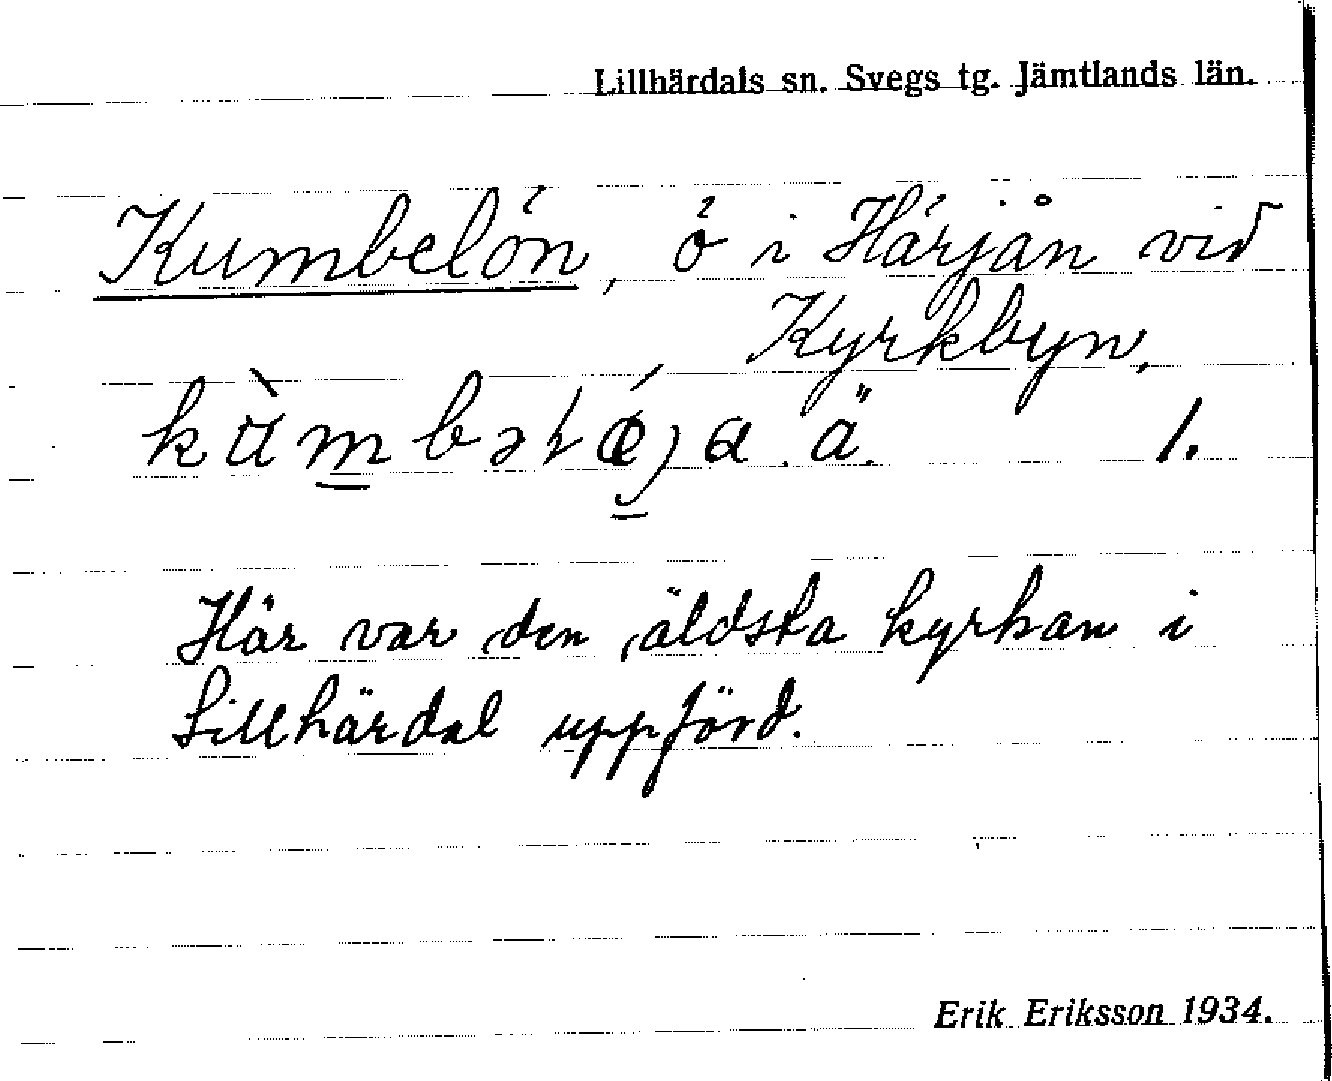 Lillhärdals sn. Svegs tg. Jämtlands län.
Kumbelön, ö i Härjån vid
Kyrkbyn.
ä. 1.
Här var den äldsta kyrkan i
Lillhärdal uppförd.
Erik Eriksson 1934.